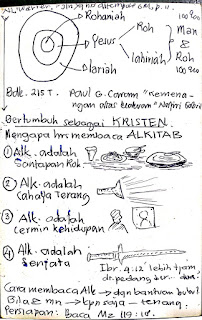 Rohaniah
Jesus
Roh
lahiriah
Man
&
Roh
lariah
Bdk. 215 T. Paul G. Caram "Kemena-
ngan atas
Bertumbuh sebagai KRISTEN.
Mengapa hrs membaca ALKITAB
① Alk. adalah
Santapan Roh
② Alk. adalah
cahaya terang
③ Alk. adalah
cermin kehidupan
④ Alk. adalah
Senjata
Ibr. 4:12 lebih tjam
dr. pedang
Cara membaca Alk → dgn bantuan buku²
Bila & mn → tenang
Persiapan: Baca Mz 119:18.